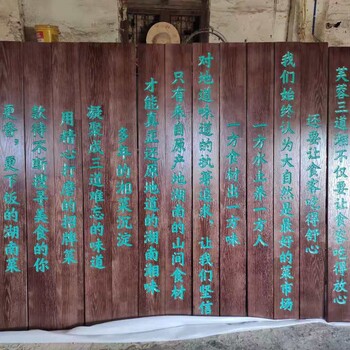 芙蓉三道湘不仅要让食客吃得放心
还要让食客吃得舒心
我们始终认为大自然是最好的菜市场
一方水土养一方人
一方食材出一方味
对地道味道的执着追求 让我们坚信
只有来自原产地湖南的山间食材
才能真正还原地道的湖南湘味
多年的湘菜沉淀
凝聚成三道难忘的味道
用精心打造的招牌菜
款待不断找寻美食的你
更香,更下饭的湖南菜